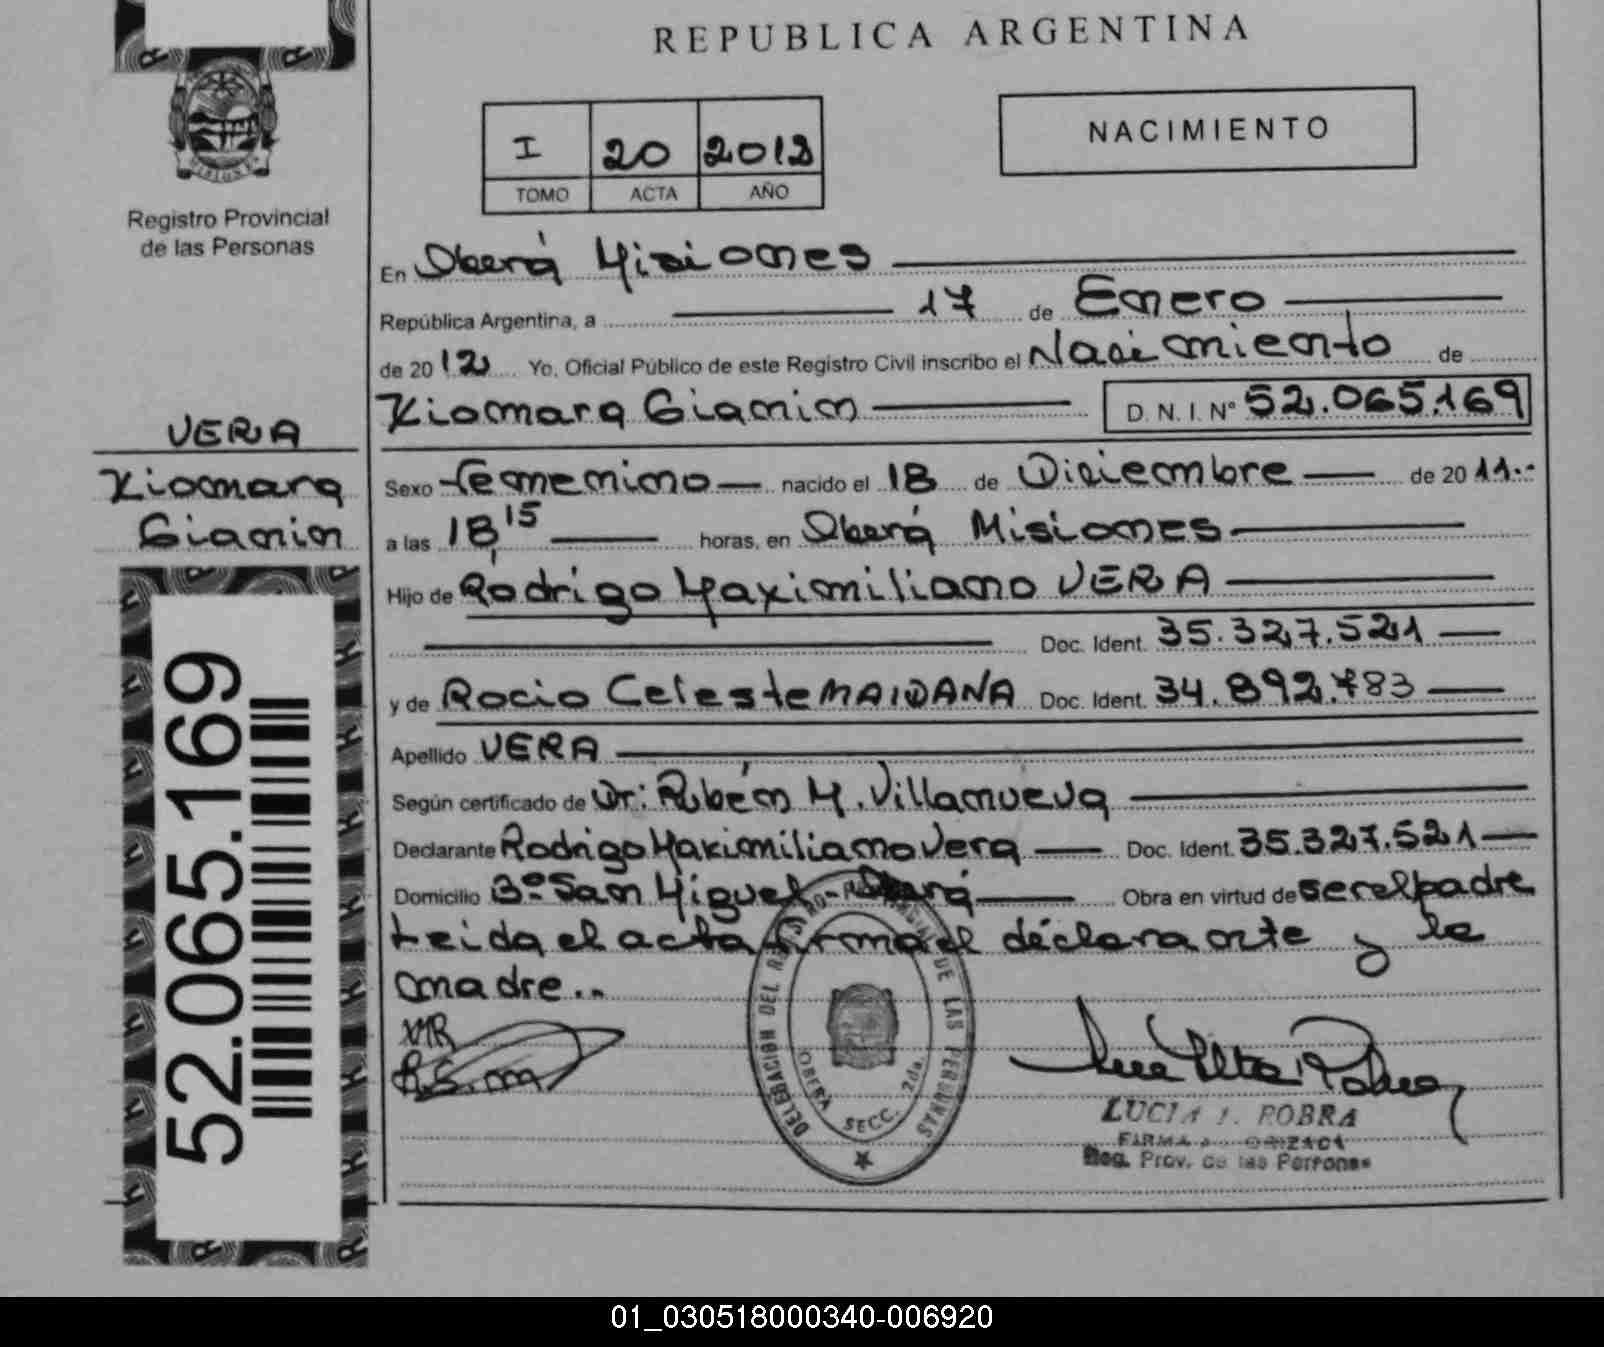 REPUBLICA ARGENTINA
NACIMIENTO
I 20 2012
TOMO ACTA AÑO
Registro Provincial
de las Personas
En Oberá Misiones
República Argentina, a 17 de Enero
de 2012 Yo, Oficial Público de este Registro Civil inscribo el Nacimiento de
Xiomara Gianin D. N. I. N° 52.065.169
VERA
Xiomara
Gianin
52.065.169
Sexo femenino nacido el 18 de Diciembre de 2011..
a las 18,15 horas, en Oberá Misiones
Hijo de Rodrigo Maximiliano VERA
Doc. Ident. 35.327.521
y de Rocio Celeste MAIDANA Doc. Ident. 34.892.783
Apellido VERA
Según certificado de Dr: Rubén M. Villanueva
Declarante Rodrigo Maximiliano Vera Doc. Ident. 35.327.521
Domicilio Bº San Miguel - Oberá Obra en virtud de ser el padre
Leida el acta firma el declarante y la
madre..
VMR
R.S.m
DELEGACION DEL REGISTRO PROVINCIAL DE LAS PERSONAS
OBERA SECC. 2da.
LUCIA J. POBRA
FIRMA AUTORIZADA
Reg. Prov. de las Personas
01_030518000340-006920